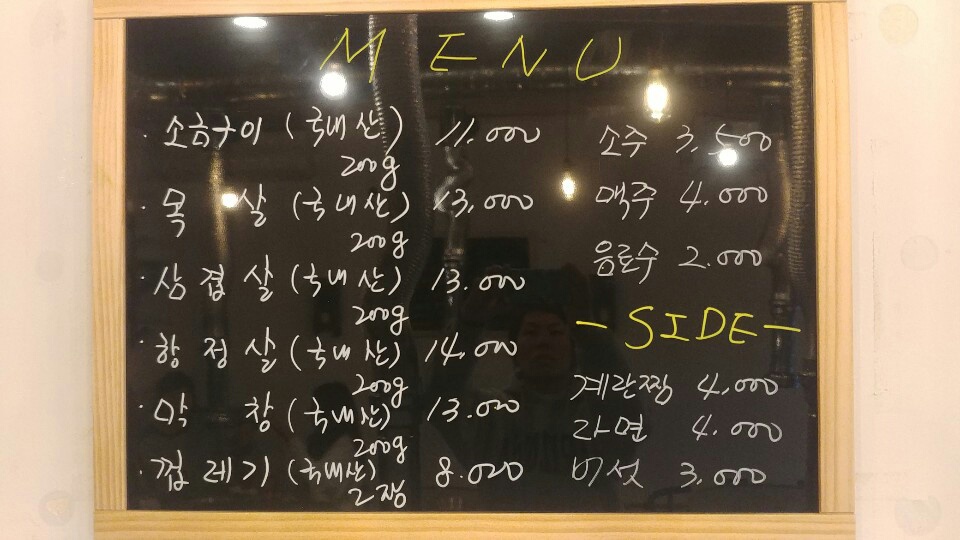 MENU
· 소금구이 (국내산) 11.000
200g
· 목 살 (국내산) 13.000
200g
· 삼겹살 (국내산) 13.000
200g
· 항정살 (국내산) 14.000
200g
· 막 창 (국내산) 13.000
200g
· 껍데기 (국내산) 8.000
2장
소주 3.500
맥주 4.000
음료수 2.000
- SIDE -
계란찜 4,000
라면 4.000
버섯 3,000